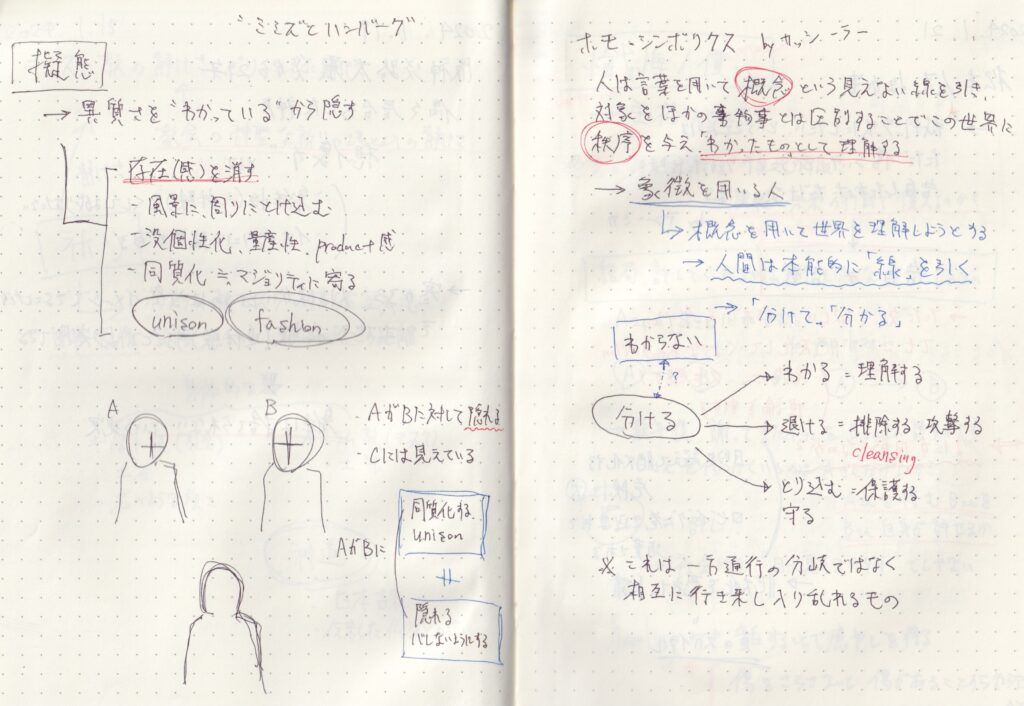 "ミミズとハンバーグ"
擬態
→ 異質さを"わかっている"から隠す
- 存在(感)を消す
- 風景に、周りにとけ込む
- 没個性化、量産性、product感
- 同質化 ≒ マジョリティに寄る
unison
fashion
A
B
・AがBに対して隠れる
・Cには見えている
AがBに
同質化する
unison
隠れる
バレないようにする
ホモ・シンボリクス by カッシーラー
人は言葉を用いて概念という見えない線を引き、
対象をほかの事物事とは区別することでこの世界に
秩序を与え「わかったものとして理解する
→ 象徴を用いる人
↳ 概念を用いて世界を理解しようとする
→ 人間は本能的に「線」を引く
→「分けて」、「分かる」
わからない
?
分ける
わかる = 理解する
退ける = 排除する 攻撃する
cleansing
とり込む = 保護する
守る
※ これは一方通行の分岐ではなく
相互に行き来し入り乱れるもの